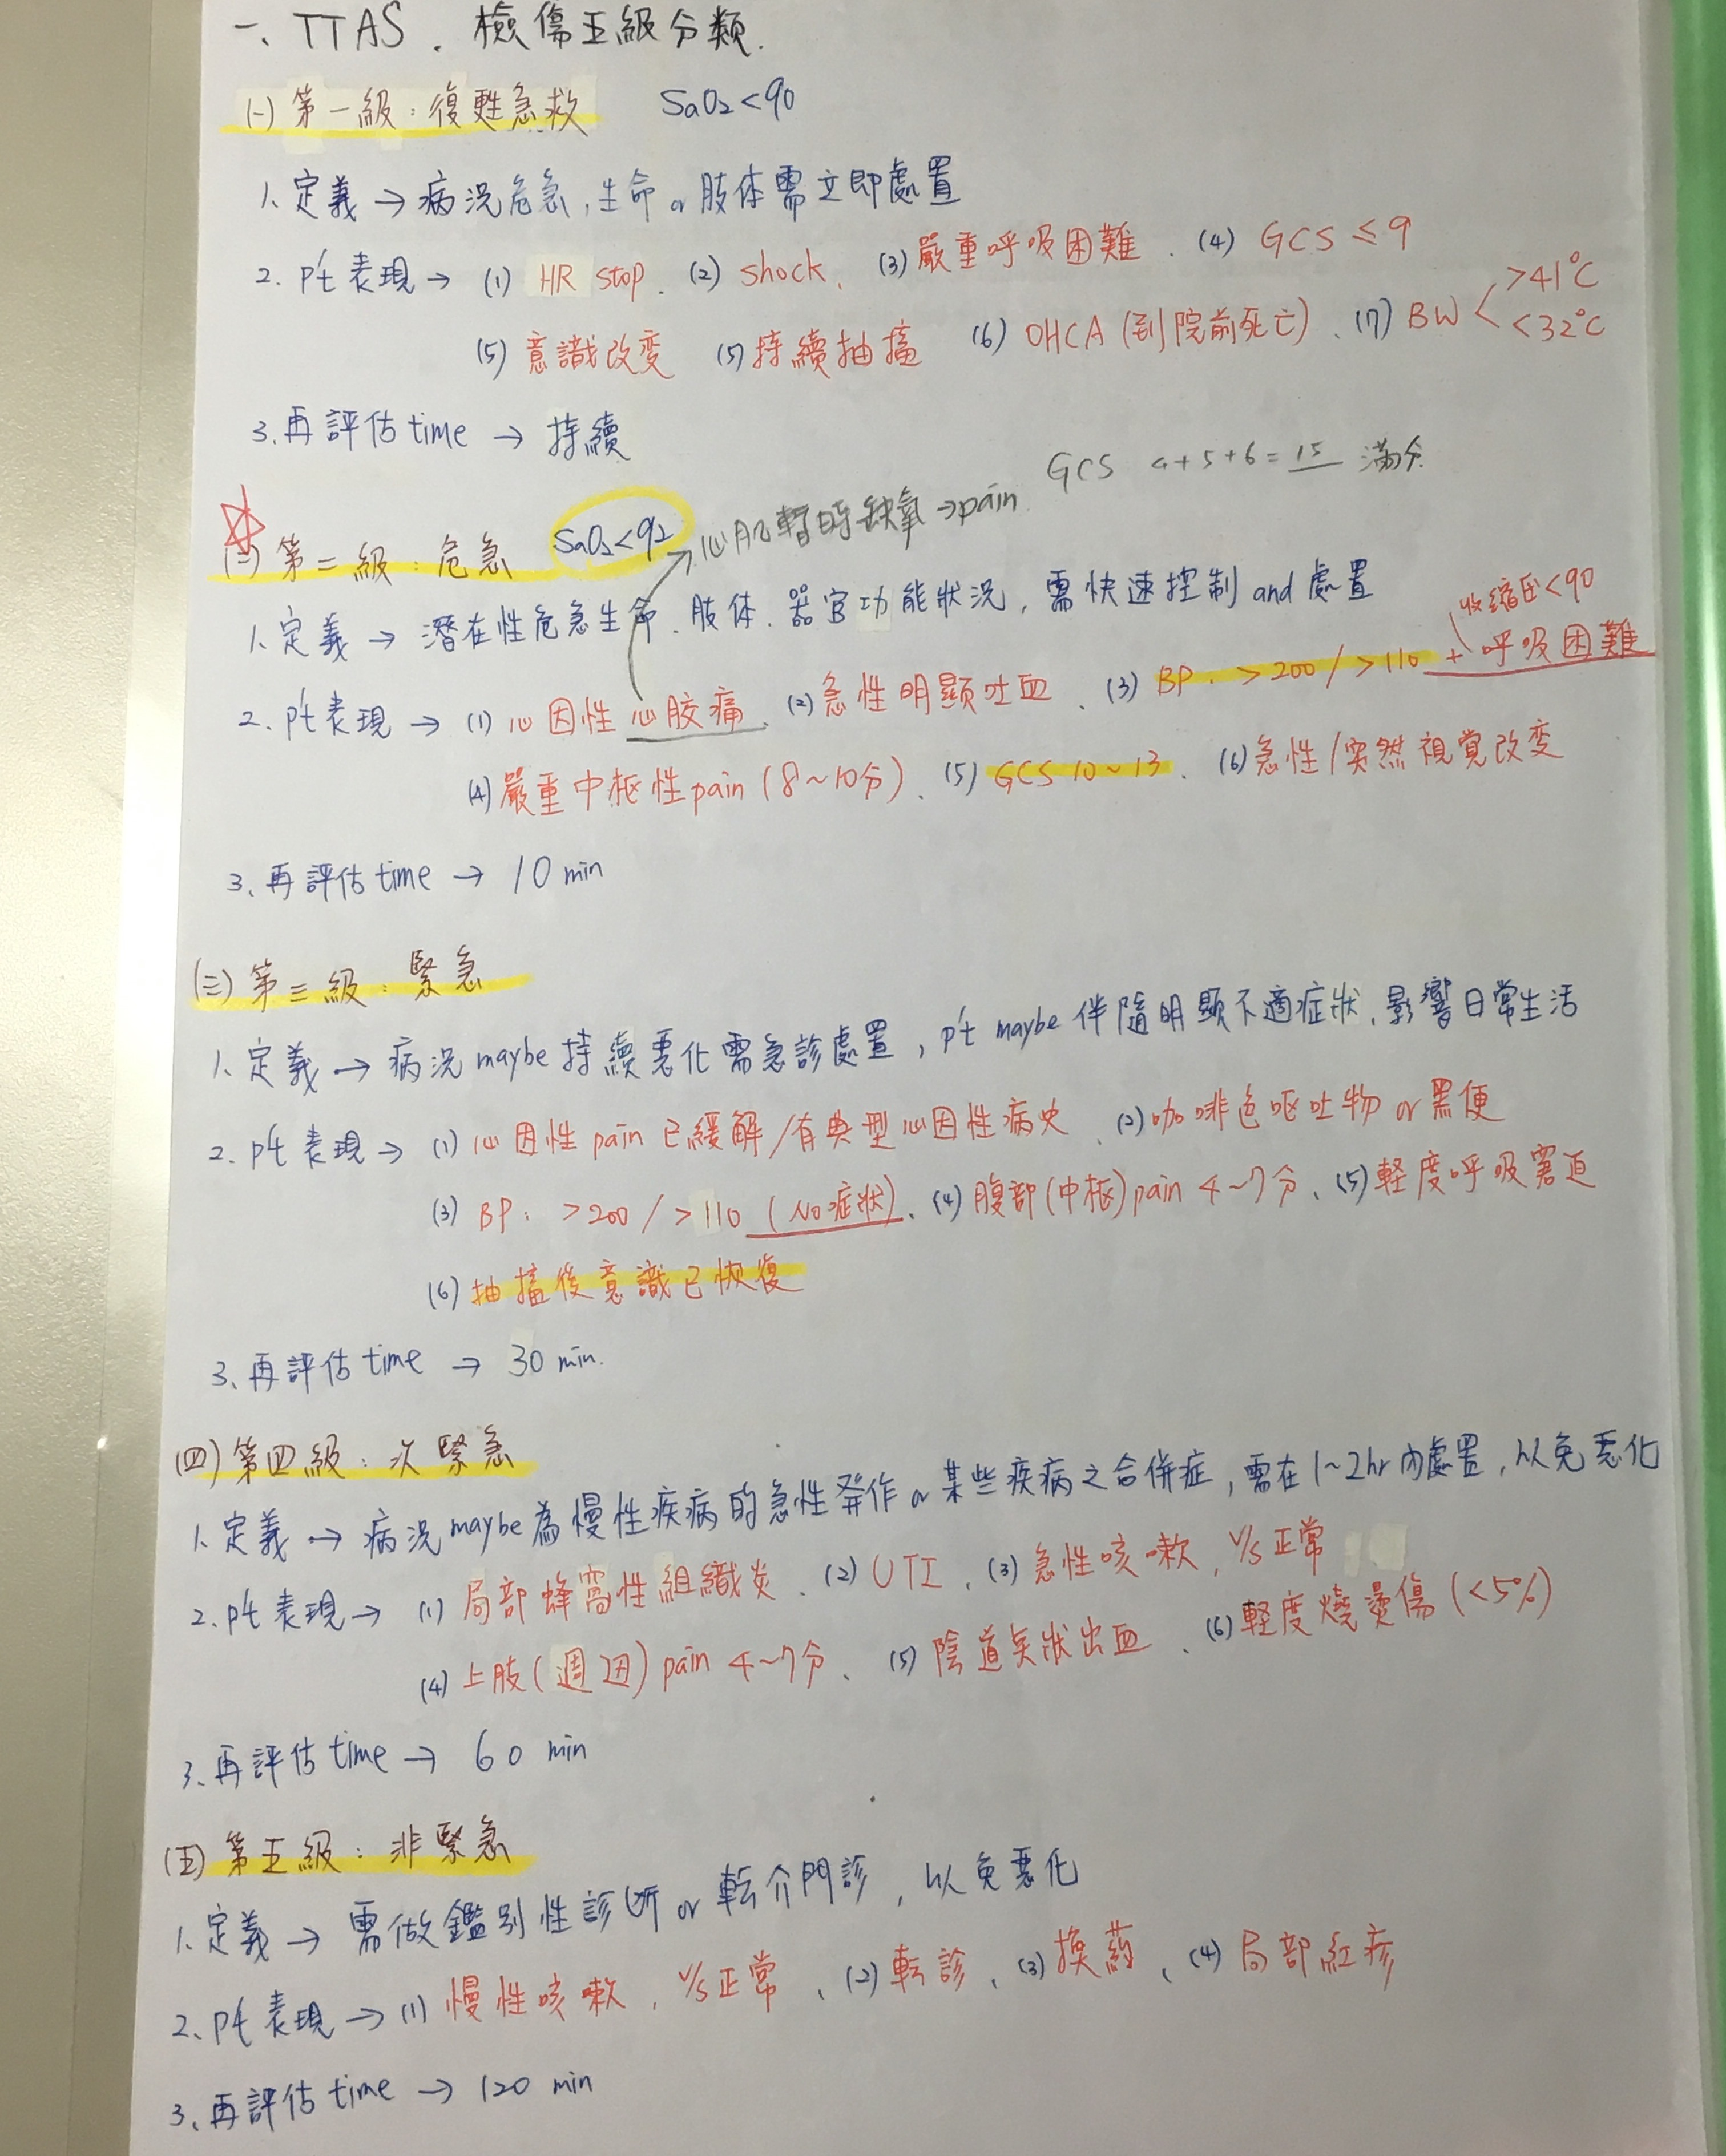 一、TTAS．檢傷五級分類.
(一) 第一級：復甦急救　SaO2<90
1. 定義 → 病況危急，生命 or 肢体需立即處置
2. p't 表現 → (1) HR stop、(2) shock、(3) 嚴重呼吸困難、(4) GCS ≤ 9
(5) 意識改變　(5) 持續抽搐　(6) OHCA (到院前死亡)、(7) BW < >41°C <32°C
3. 再評估 time → 持續
GCS 4+5+6=15 滿分
(二) 第二級：危急　SaO2<92　心肌暫時缺氧→pain
1. 定義 → 潛在性危急生命、肢体、器官功能狀況，需快速控制 and 處置
收縮压<90
2. p't 表現 → (1) 心因性心胶痛、(2) 急性明顯吐血、(3) BP：>200/>110 + 呼吸困難
(4) 嚴重中枢性 pain (8~10分)、(5) GCS 10~13、(6) 急性/突然視覺改变
3. 再評估 time → 10 min
(三) 第三級：緊急
1. 定義 → 病況 maybe 持續惡化需急診處置，p't maybe 伴隨明顯不適症狀，影響日常生活
2. p't 表現 → (1) 心因性 pain 已緩解/有典型心因性病史、(2) 咖啡色呕吐物 or 黑便
(3) BP：>200/>110 (No症狀)、(4) 腹部(中枢) pain 4~7分、(5) 軽度呼吸窘迫
(6) 抽搐後意識已恢復
3. 再評估 time → 30 min.
(四) 第四級：次緊急
1. 定義 → 病況 maybe 為慢性疾病的急性発作 or 某些疾病之合併症，需在 1~2hr 內處置，以免惡化
2. p't 表現 → (1) 局部蜂窩性組織炎、(2) UTI、(3) 急性咳嗽，V/S 正常
(4) 上肢(週边) pain 4~7分、(5) 陰道矢狀出血、(6) 軽度燒燙傷 (<5%)
3. 再評估 time → 60 min
(五) 第五級：非緊急
1. 定義 → 需做鑑別性診斷 or 転介門診，以免惡化
2. p't 表現 → (1) 慢性咳嗽，V/S 正常、(2) 転診、(3) 換藥、(4) 局部紅疹
3. 再評估 time → 120 min